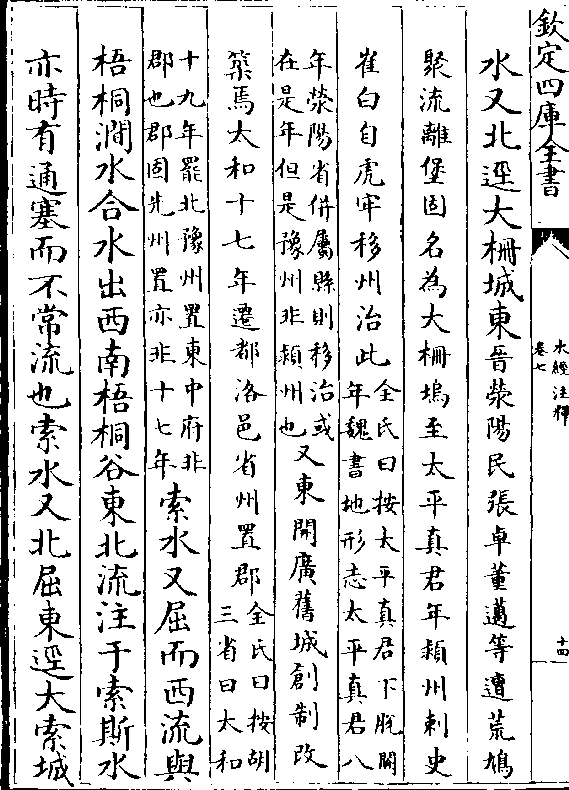 欽定四庫全書
水經注釋
卷七
十四
水又北逕大柵城東晉滎陽民張卓董邁等遭荒鳩
聚流離堡固名為大柵塢至太平真君年潁州刺史
崔白自虎牢移州治此全氏曰按太平真君下脫闕
年魏書地形志太平真君八
年滎陽省併屬縣則移治或
在是年但是豫州非潁州也又東開廣舊城創制改
築焉太和十七年遷都洛邑省州置郡全氏曰按胡
三省曰太和
十九年罷北豫州置東中府非
郡也郡固先州置亦非十七年索水又屈而西流與
梧桐澗水合水出西南梧桐谷東北流注于索斯水
亦時有通塞而不常流也索水又北屈東逕大索城